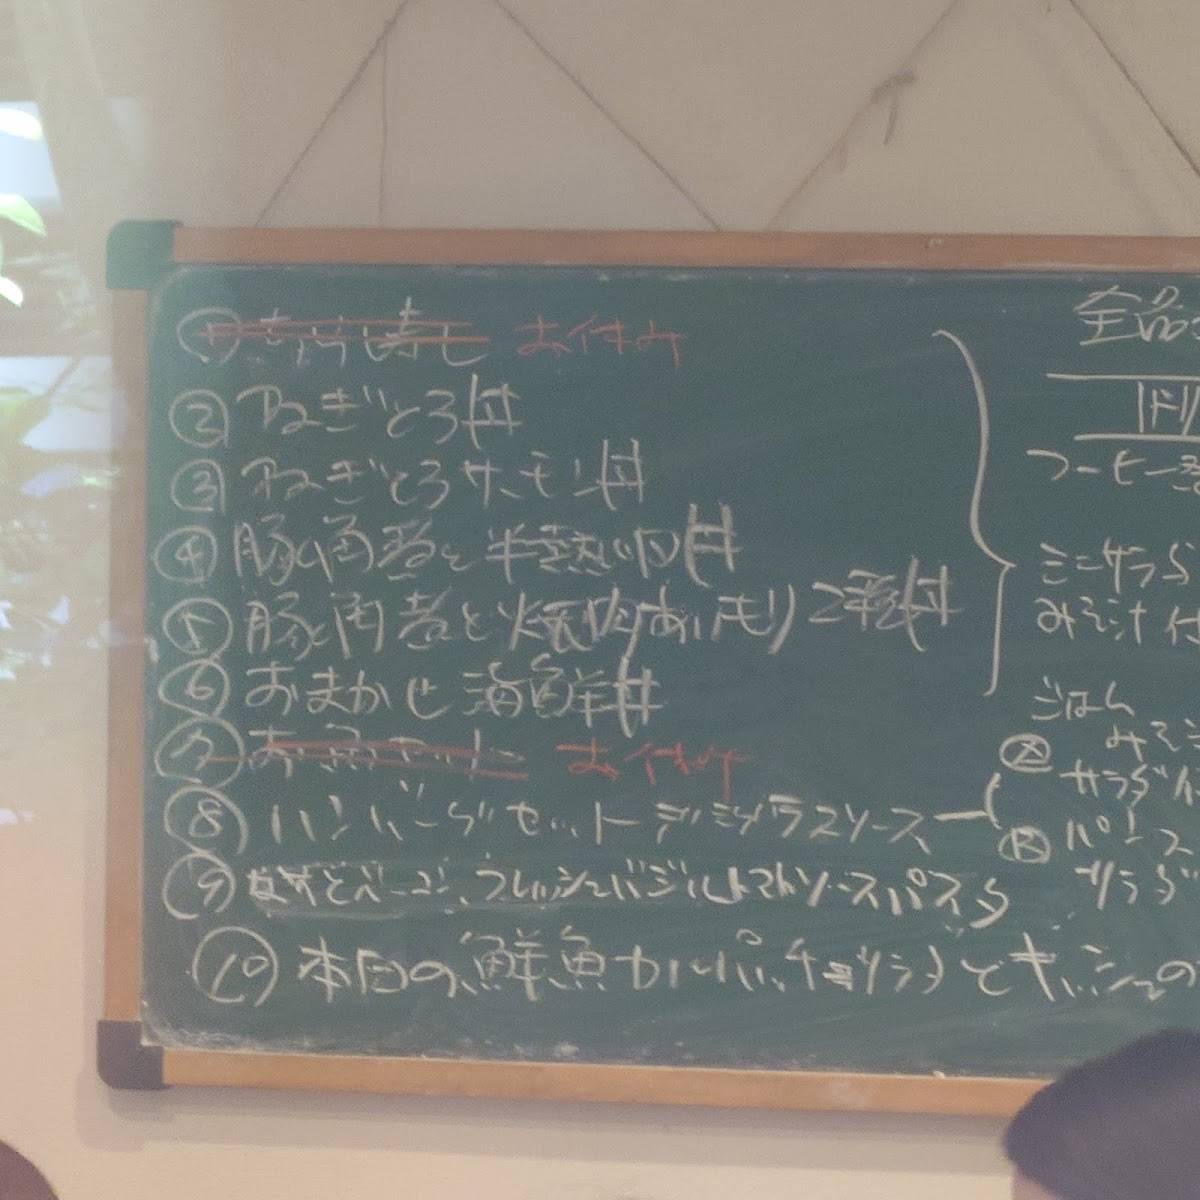 ① ちらし寿し お休み
② ねぎとろ丼
③ ねぎとろサーモン丼
④ 豚角煮と半熟卵丼
⑤ 豚角煮と焼肉あいもり2種丼
⑥ おまかせ海鮮丼
⑦ お魚セット お休み
⑧ ハンバーグセット デミグラスソース
⑨ なすとベーコン、フレッシュバジルトマトソースパスタ
⑩ 本日の鮮魚カルパッチョサラダとキッシュの
全品
ドリ
コーヒー
ミニサラダ
みそ汁付
ごはん
Ⓐ みそ
サラダ付
Ⓑ パン ス
サラダ